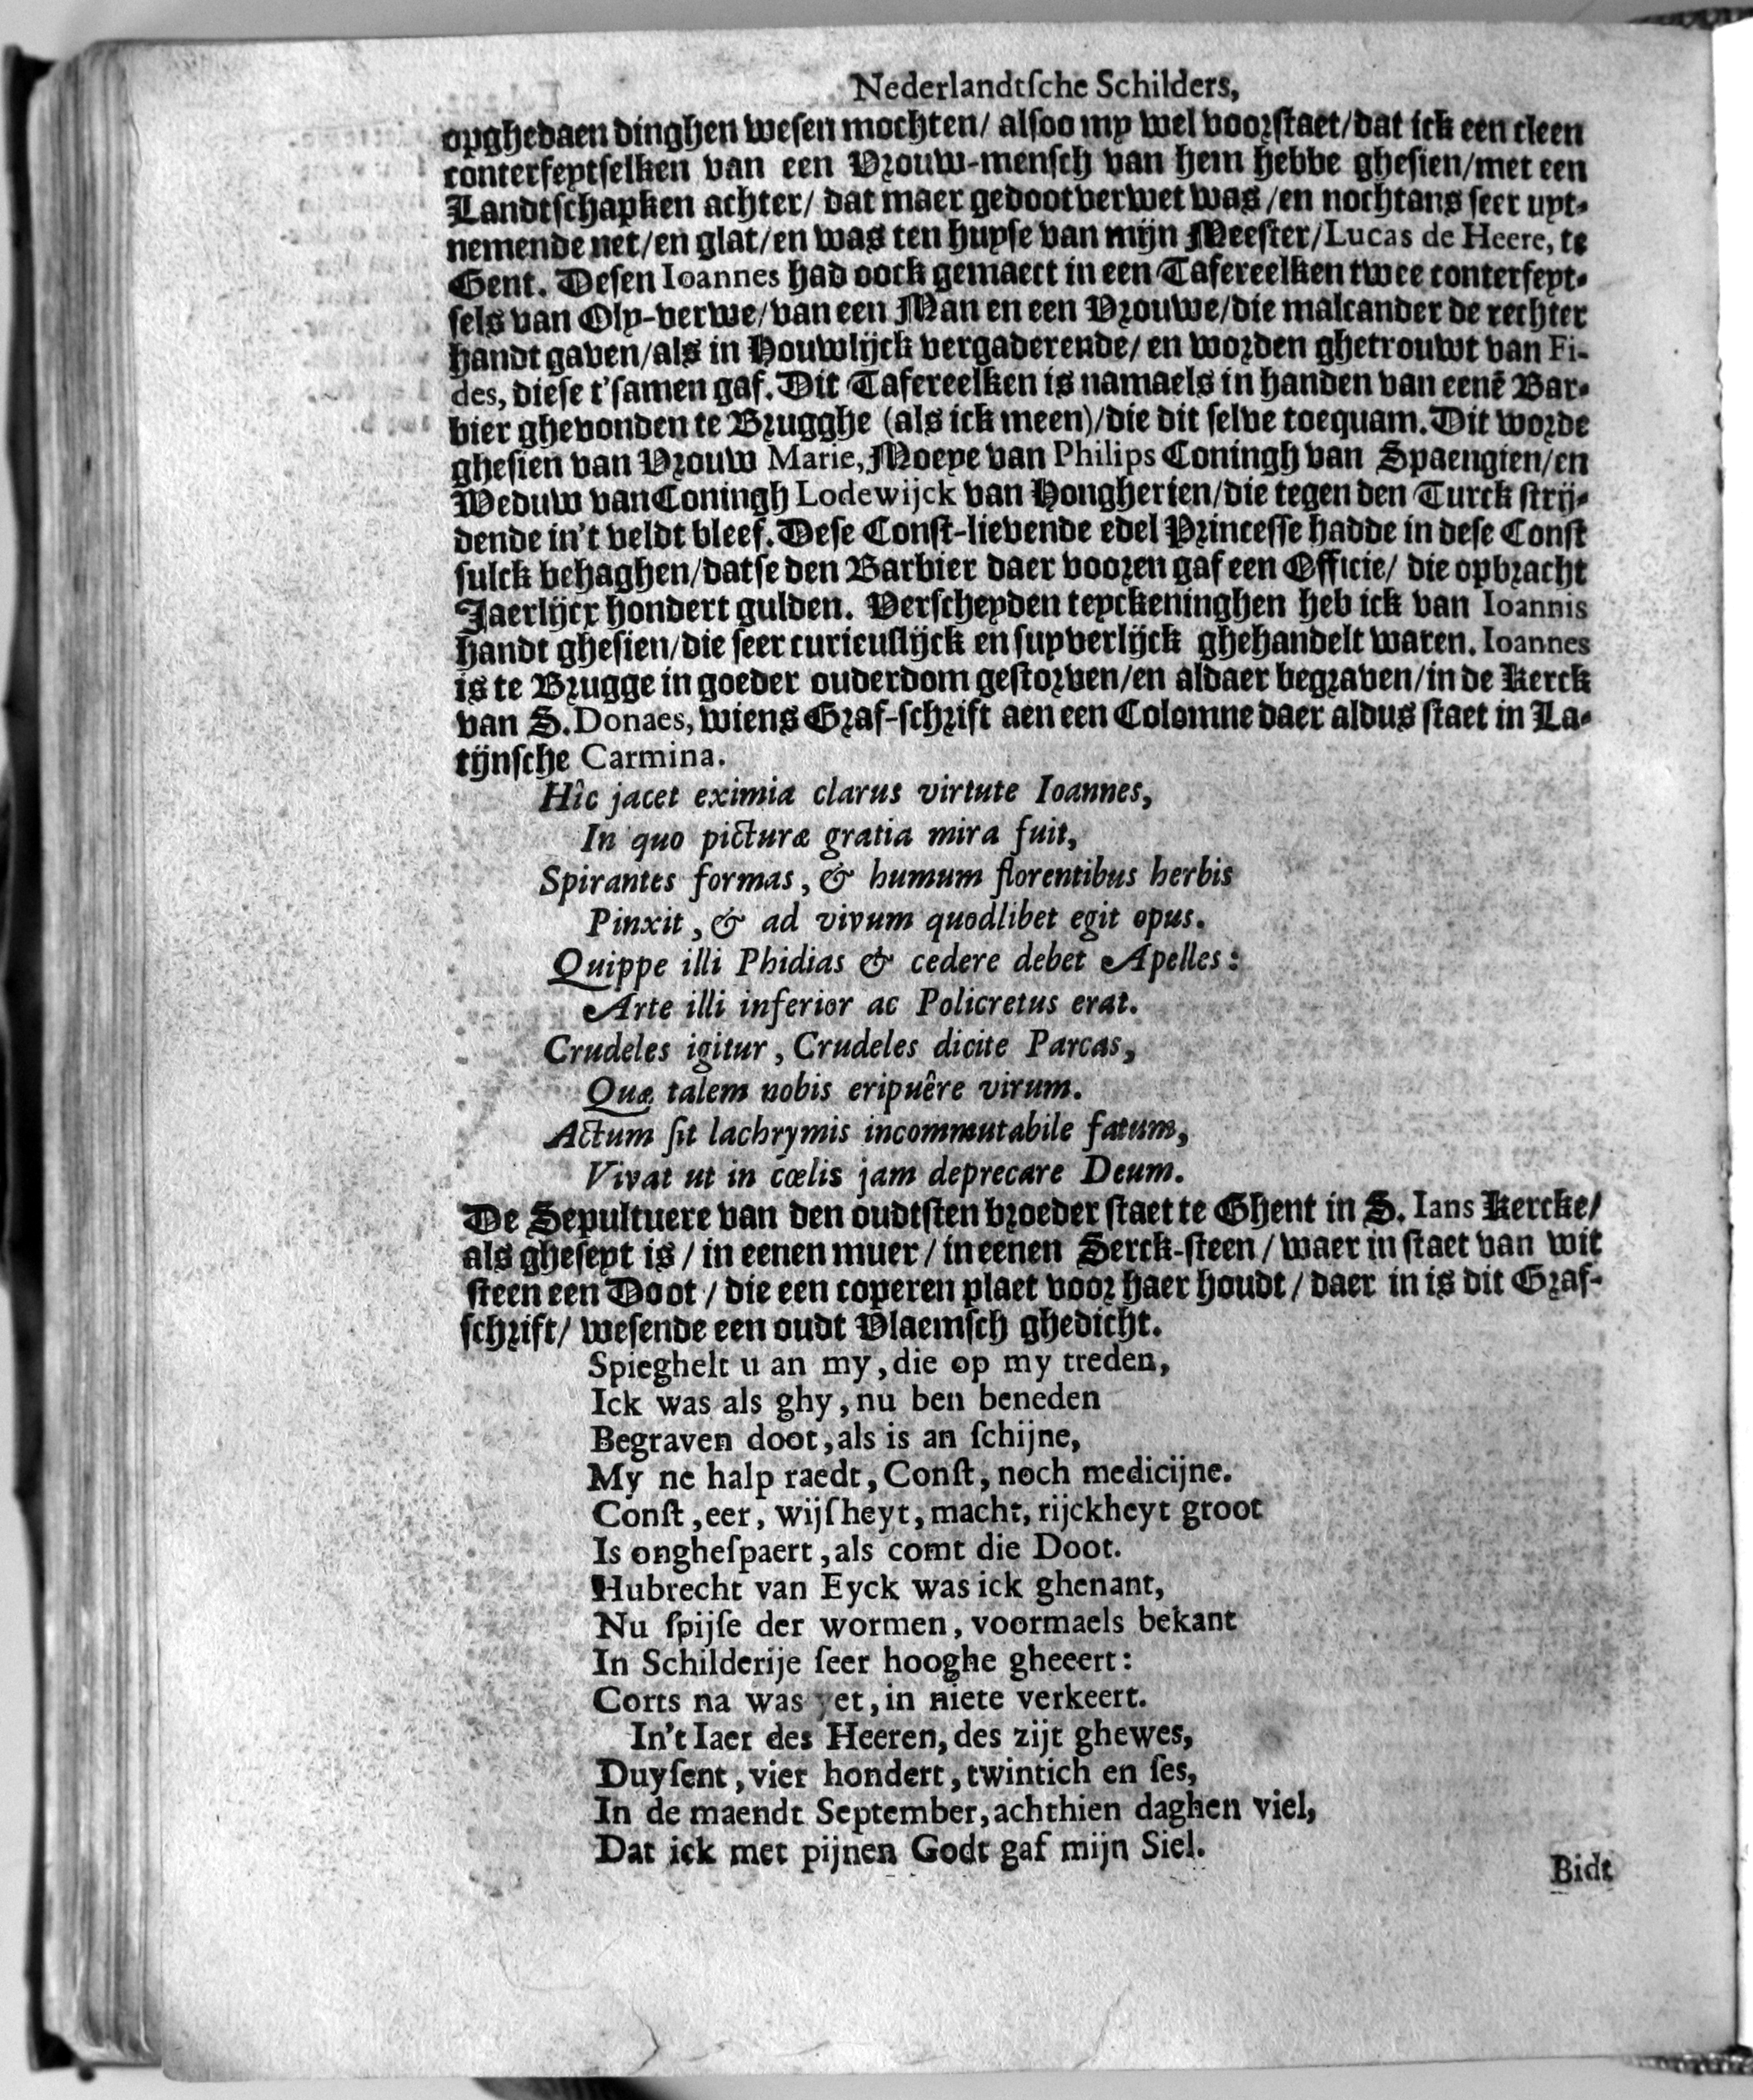 Nederlandtſche Schilders,
opghedaen dinghen weſen mochten/ alſoo my wel voorſtaet/dat ick een cleen
conterfeytſelken van een Vrouw-menſch van hem hebbe gheſien/met een
Landtſchapken achter/ dat maer gedootverwet was/en nochtans ſeer uyt-
nemende net/en glat/en was ten huyſe van mijn Meeſter/Lucas de Heere, te
Gent. Deſen Ioannes had oock gemaect in een Tafereelken twee conterfeyt-
ſels van Oly-verwe/van een Man en een Vrouwe/die malcander de rechter
handt gaven/als in Houwlijck vergaderende/ en worden ghetrouwt van Fi-
des, dieſe t'ſamen gaf. Dit Tafereelken is namaels in handen van eenē Bar-
bier ghevonden te Brugghe (als ick meen)/die dit ſelve toequam. Dit worde
gheſien van Vrouw Marie, Moeye van Philips Coningh van Spaengien/en
Weduw van Coningh Lodewijck van Hongherien/die tegen den Turck ſtrij-
dende in't veldt bleef. Deſe Conſt-lievende edel Princeſſe hadde in deſe Conſt
ſulck behaghen/datſe den Barbier daer vooren gaf een Officie/ die opbracht
Jaerlijcx hondert gulden. Verſcheyden teyckeninghen heb ick van Ioannis
handt gheſien/die ſeer curieuſlijck en ſuyverlijck ghehandelt waren. Ioannes
is te Brugge in goeder ouderdom geſtorven/en aldaer begraven/in de Kerck
van S. Donaes, wiens Graf-ſchrift aen een Colomne daer aldus ſtaet in La-
tijnſche Carmina.
Hîc jacet eximia clarus virtute Ioannes,
In quo picturæ gratia mira fuit,
Spirantes formas, & humum florentibus herbis
Pinxit, & ad vivum quodlibet egit opus.
Quippe illi Phidias & cedere debet Apelles:
Arte illi inferior ac Policretus erat.
Crudeles igitur, Crudeles dicite Parcas,
Quæ talem nobis eripuêre virum.
Actum ſit lachrymis incommutabile fatum,
Vivat ut in cœlis jam deprecare Deum.
De Sepultuere van den oudtſten broeder ſtaet te Ghent in S. Ians Kercke/
als gheſeyt is/ in eenen muer/ in eenen Serck-ſteen/ waer in ſtaet van wit
ſteen een Doot/ die een coperen plaet voor haer houdt/ daer in is dit Graf-
ſchrift/ weſende een oudt Vlaemſch ghedicht.
Spieghelt u an my, die op my treden,
Ick was als ghy, nu ben beneden
Begraven doot, als is an ſchijne,
My ne halp raedt, Conſt, noch medicijne.
Conſt, eer, wijſheyt, macht, rijckheyt groot
Is ongheſpaert, als comt die Doot.
Hubrecht van Eyck was ick ghenant,
Nu ſpijſe der wormen, voormaels bekant
In Schilderije ſeer hooghe gheeert:
Corts na was yet, in niete verkeert.
In't Iaer des Heeren, des zijt ghewes,
Duyſent, vier hondert, twintich en ſes,
In de maendt September, achthien daghen viel,
Dat ick met pijnen Godt gaf mijn Siel.
Bidt